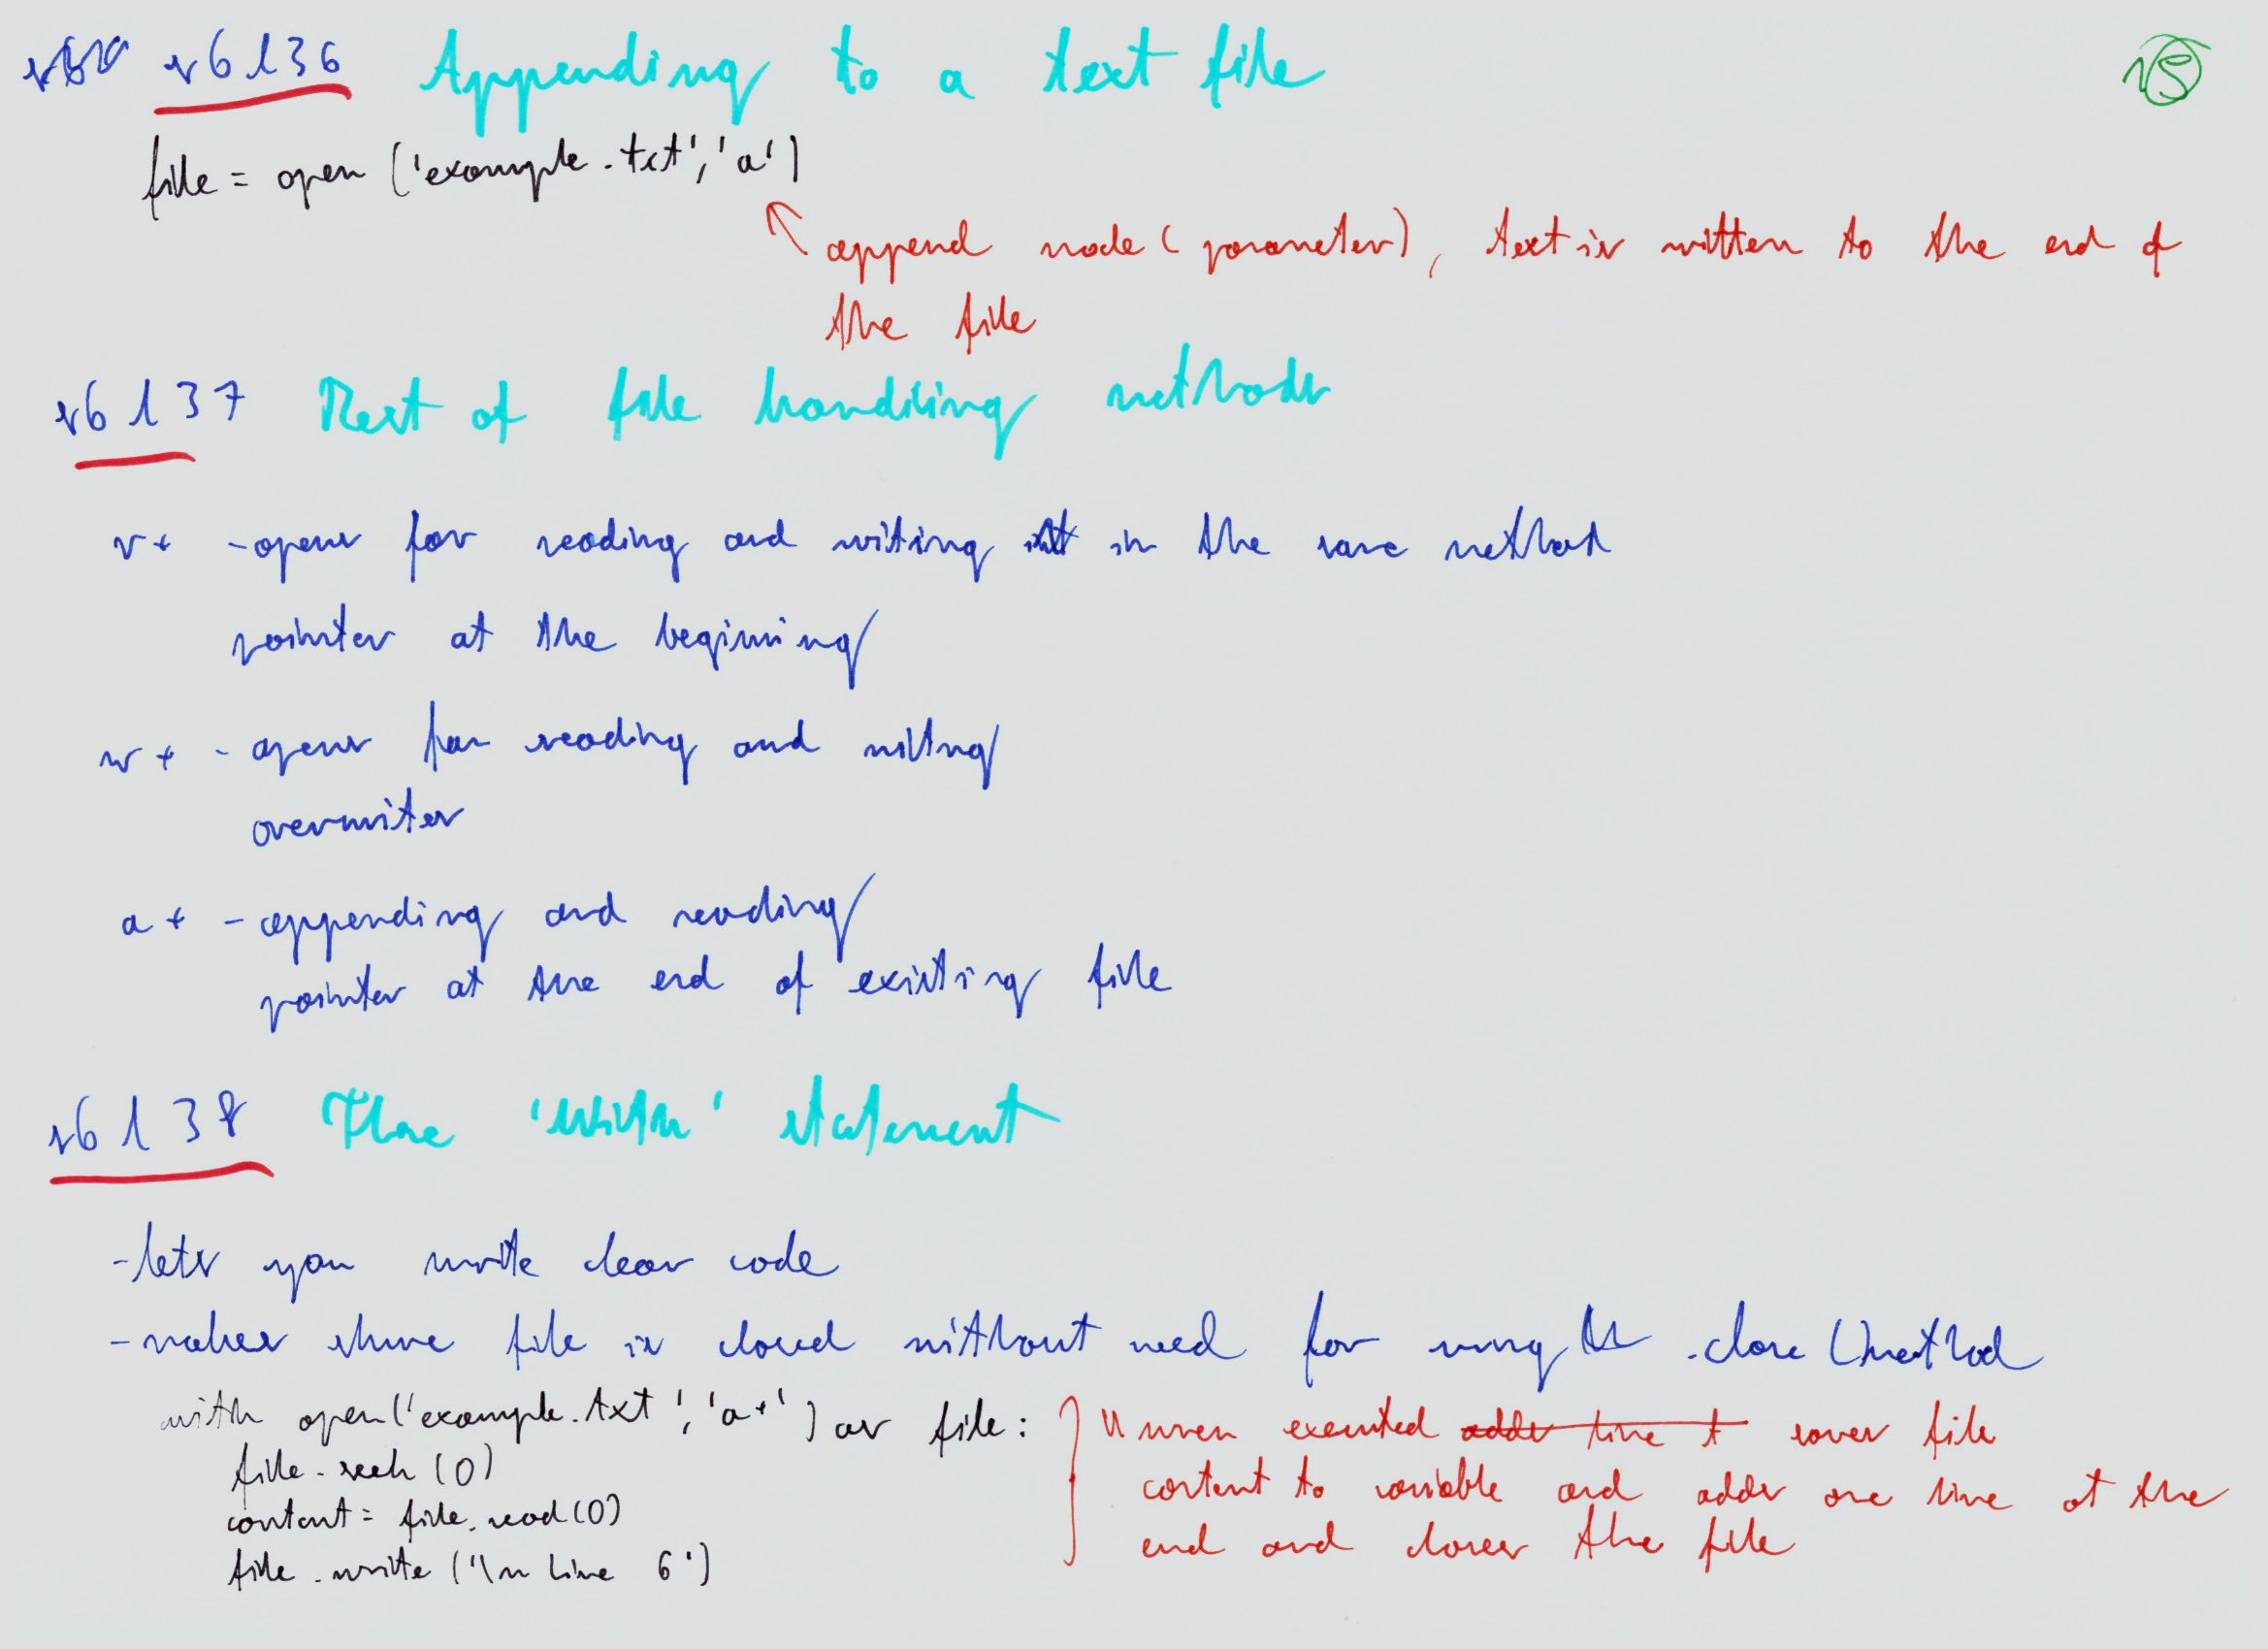 s6 l36 Appending to a text file
15
file = open ('example.txt', 'a')
append mode (parameter), text is written to the end of
the file
s6 l37 Rest of file handling methods
r+ - opens for reading and writing in the same method
pointer at the beginning
w+ - opens for reading and writing
overwrites
a+ - appending and reading
pointer at the end of existing file
s6 l38 The 'with' statement
- lets you write clear code
- makes shure file is closed without need for using the .close () method
with open('example.txt', 'a+') as file:
file.seek (0)
content = file.read (0)
file.write ('\n Line 6')
when executed adds line t saves file
content to variable and adds one line at the
end and closes the file